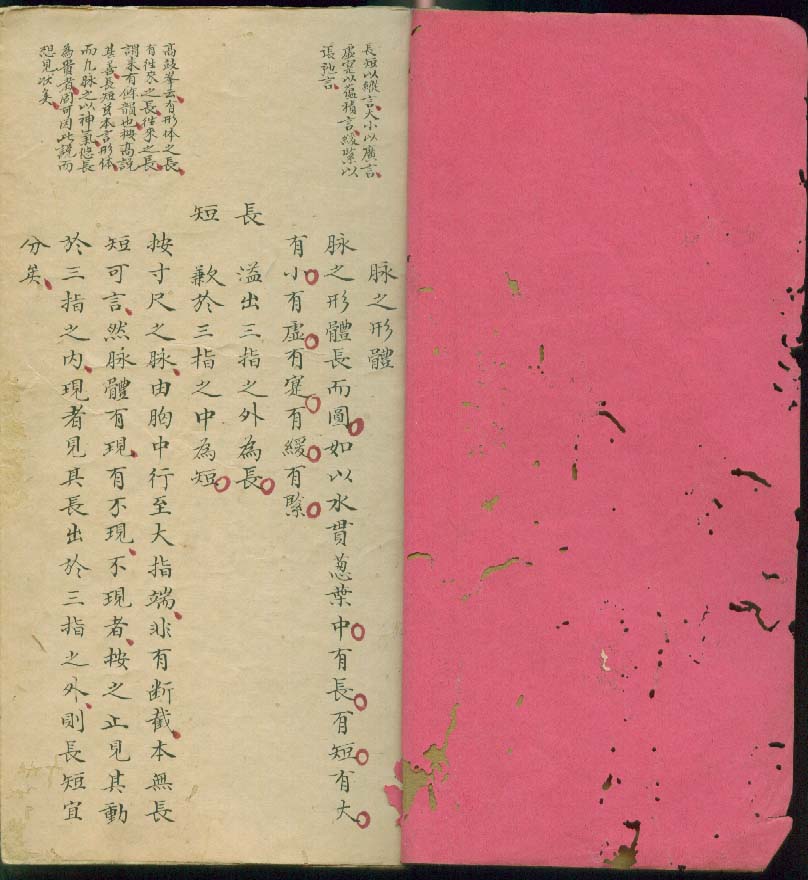 長短以縱言大小以廣言
虛寔以蘊積言緩緊以
張弛言
高鼓峯云有形体之長
有往來之長往來之長
謂來有餘韻也按高說
善長短本言形体
而凡脉之以神氣悠長
為貴者固可因此說而
想見矣
脉之形體
脉之形體長而圓如以水貫葱葉中有長有短有大
有小有虛有寔有緩有緊
長 溢出三指之外為長
短 歉於三指之中為短
按寸尺之脉由胸中行至大指端非有断截本無長
短可言然脉體有現有不現不現者按之止見其動
於三指之內現者見其長出於三指之外則長短宜
分矣